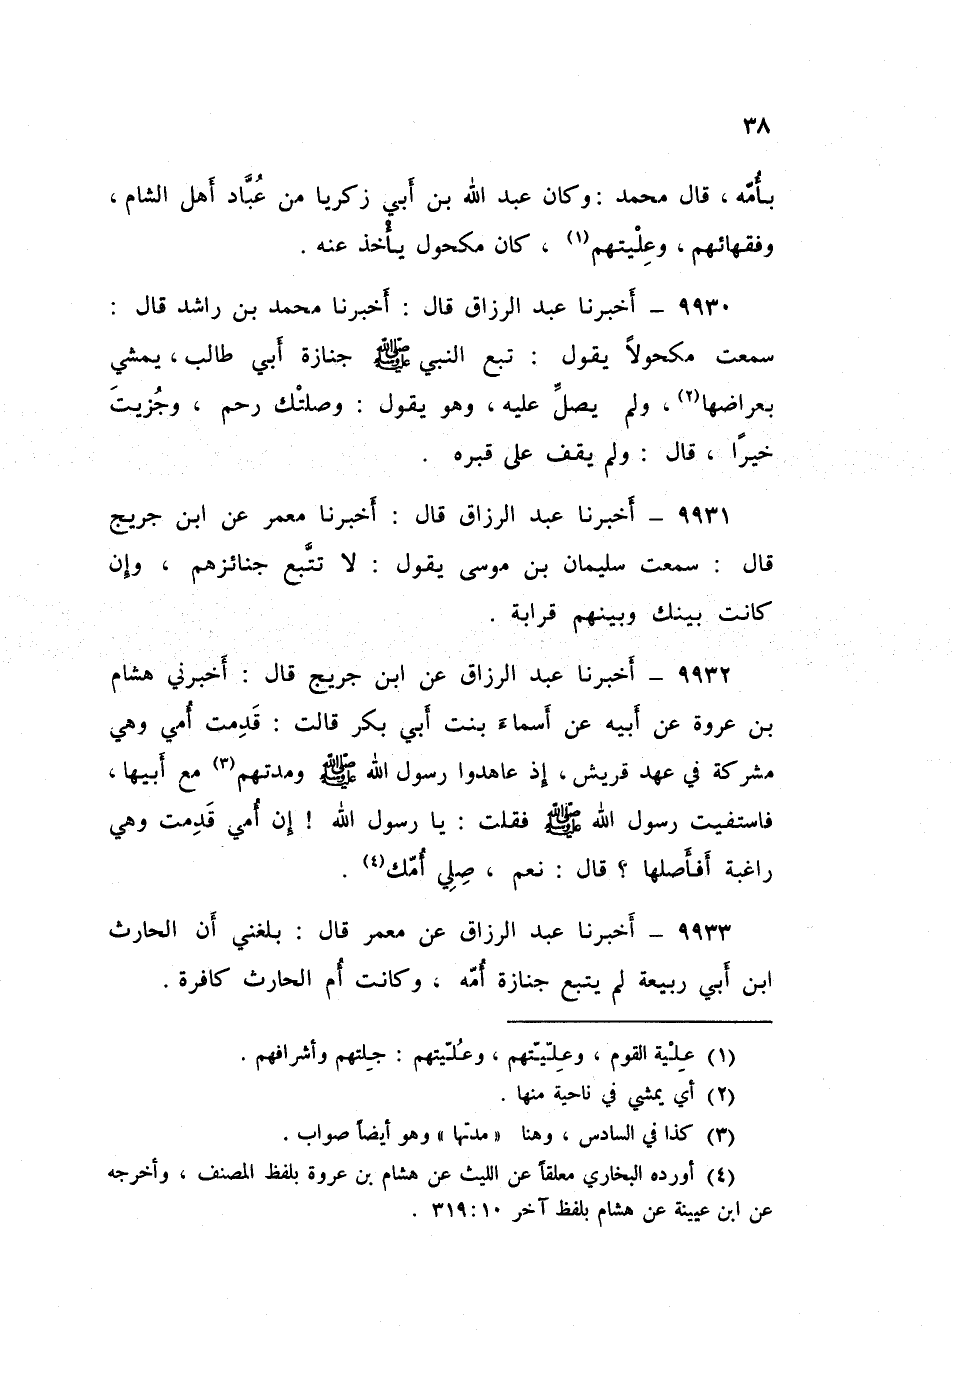 ٣٨
بأُمّه ، قال محمد : وكان عبد الله بن أَبي زكريا من عُبَّاد أَهل الشام ،
وفقهائهم ، وعِلْيتهم(١) ، كان مكحول يأْخذ عنه .
٩٩٣٠ ـ أَخبرنا عبد الرزاق قال : أَخبرنا محمد بن راشد قال :
سمعت مكحولاً يقول : تبع النبي ﷺ جنازة أَبي طالب ، يمشي
بعراضها(٢) ، ولم يصلِّ عليه ، وهو يقول : وصلتْك رحم ، وجُزيتَ
خيرًا ، قال : ولم يقف على قبره .
٩٩٣١ ـ أَخبرنا عبد الرزاق قال : أَخبرنا معمر عن ابن جريج
قال : سمعت سليمان بن موسى يقول : لا تتَّبع جنائزهم ، وإِن
كانت بينك وبينهم قرابة .
٩٩٣٢ ـ أَخبرنا عبد الرزاق عن ابن جريج قال : أَخبرني هشام
بن عروة عن أَبيه عن أَسماءَ بنت أَبي بكر قالت : قَدِمت أُمي وهي
مشركة في عهد قريش ، إذ عاهدوا رسول الله ﷺ ومدتهم(٣) مع أَبيها ،
فاستفيت رسول الله ﷺ فقلت : يا رسول الله ! إن أُمي قَدِمت وهي
راغبة أَفأَصلها ؟ قال : نعم ، صِلِي أُمّك(٤) .
٩٩٣٣ ـ أَخبرنا عبد الرزاق عن معمر قال : بلغني أَن الحارث
ابن أَبي ربيعة لم يتبع جنازة أُمّه ، وكانت أُم الحارث كافرة .
(١) عِلْية القوم ، وعِلّيّتهم ، وعُلّيتهم : جِلتهم وأشرافهم .
(٢) أي يمشي في ناحية منها .
(٣) كذا في السادس ، وهنا « مدتها » وهو أيضاً صواب .
(٤) أورده البخاري معلقاً عن الليث عن هشام بن عروة بلفظ المصنف ، وأخرجه
عن ابن عيينة عن هشام بلفظ آخر ١٠ : ٣١٩ .